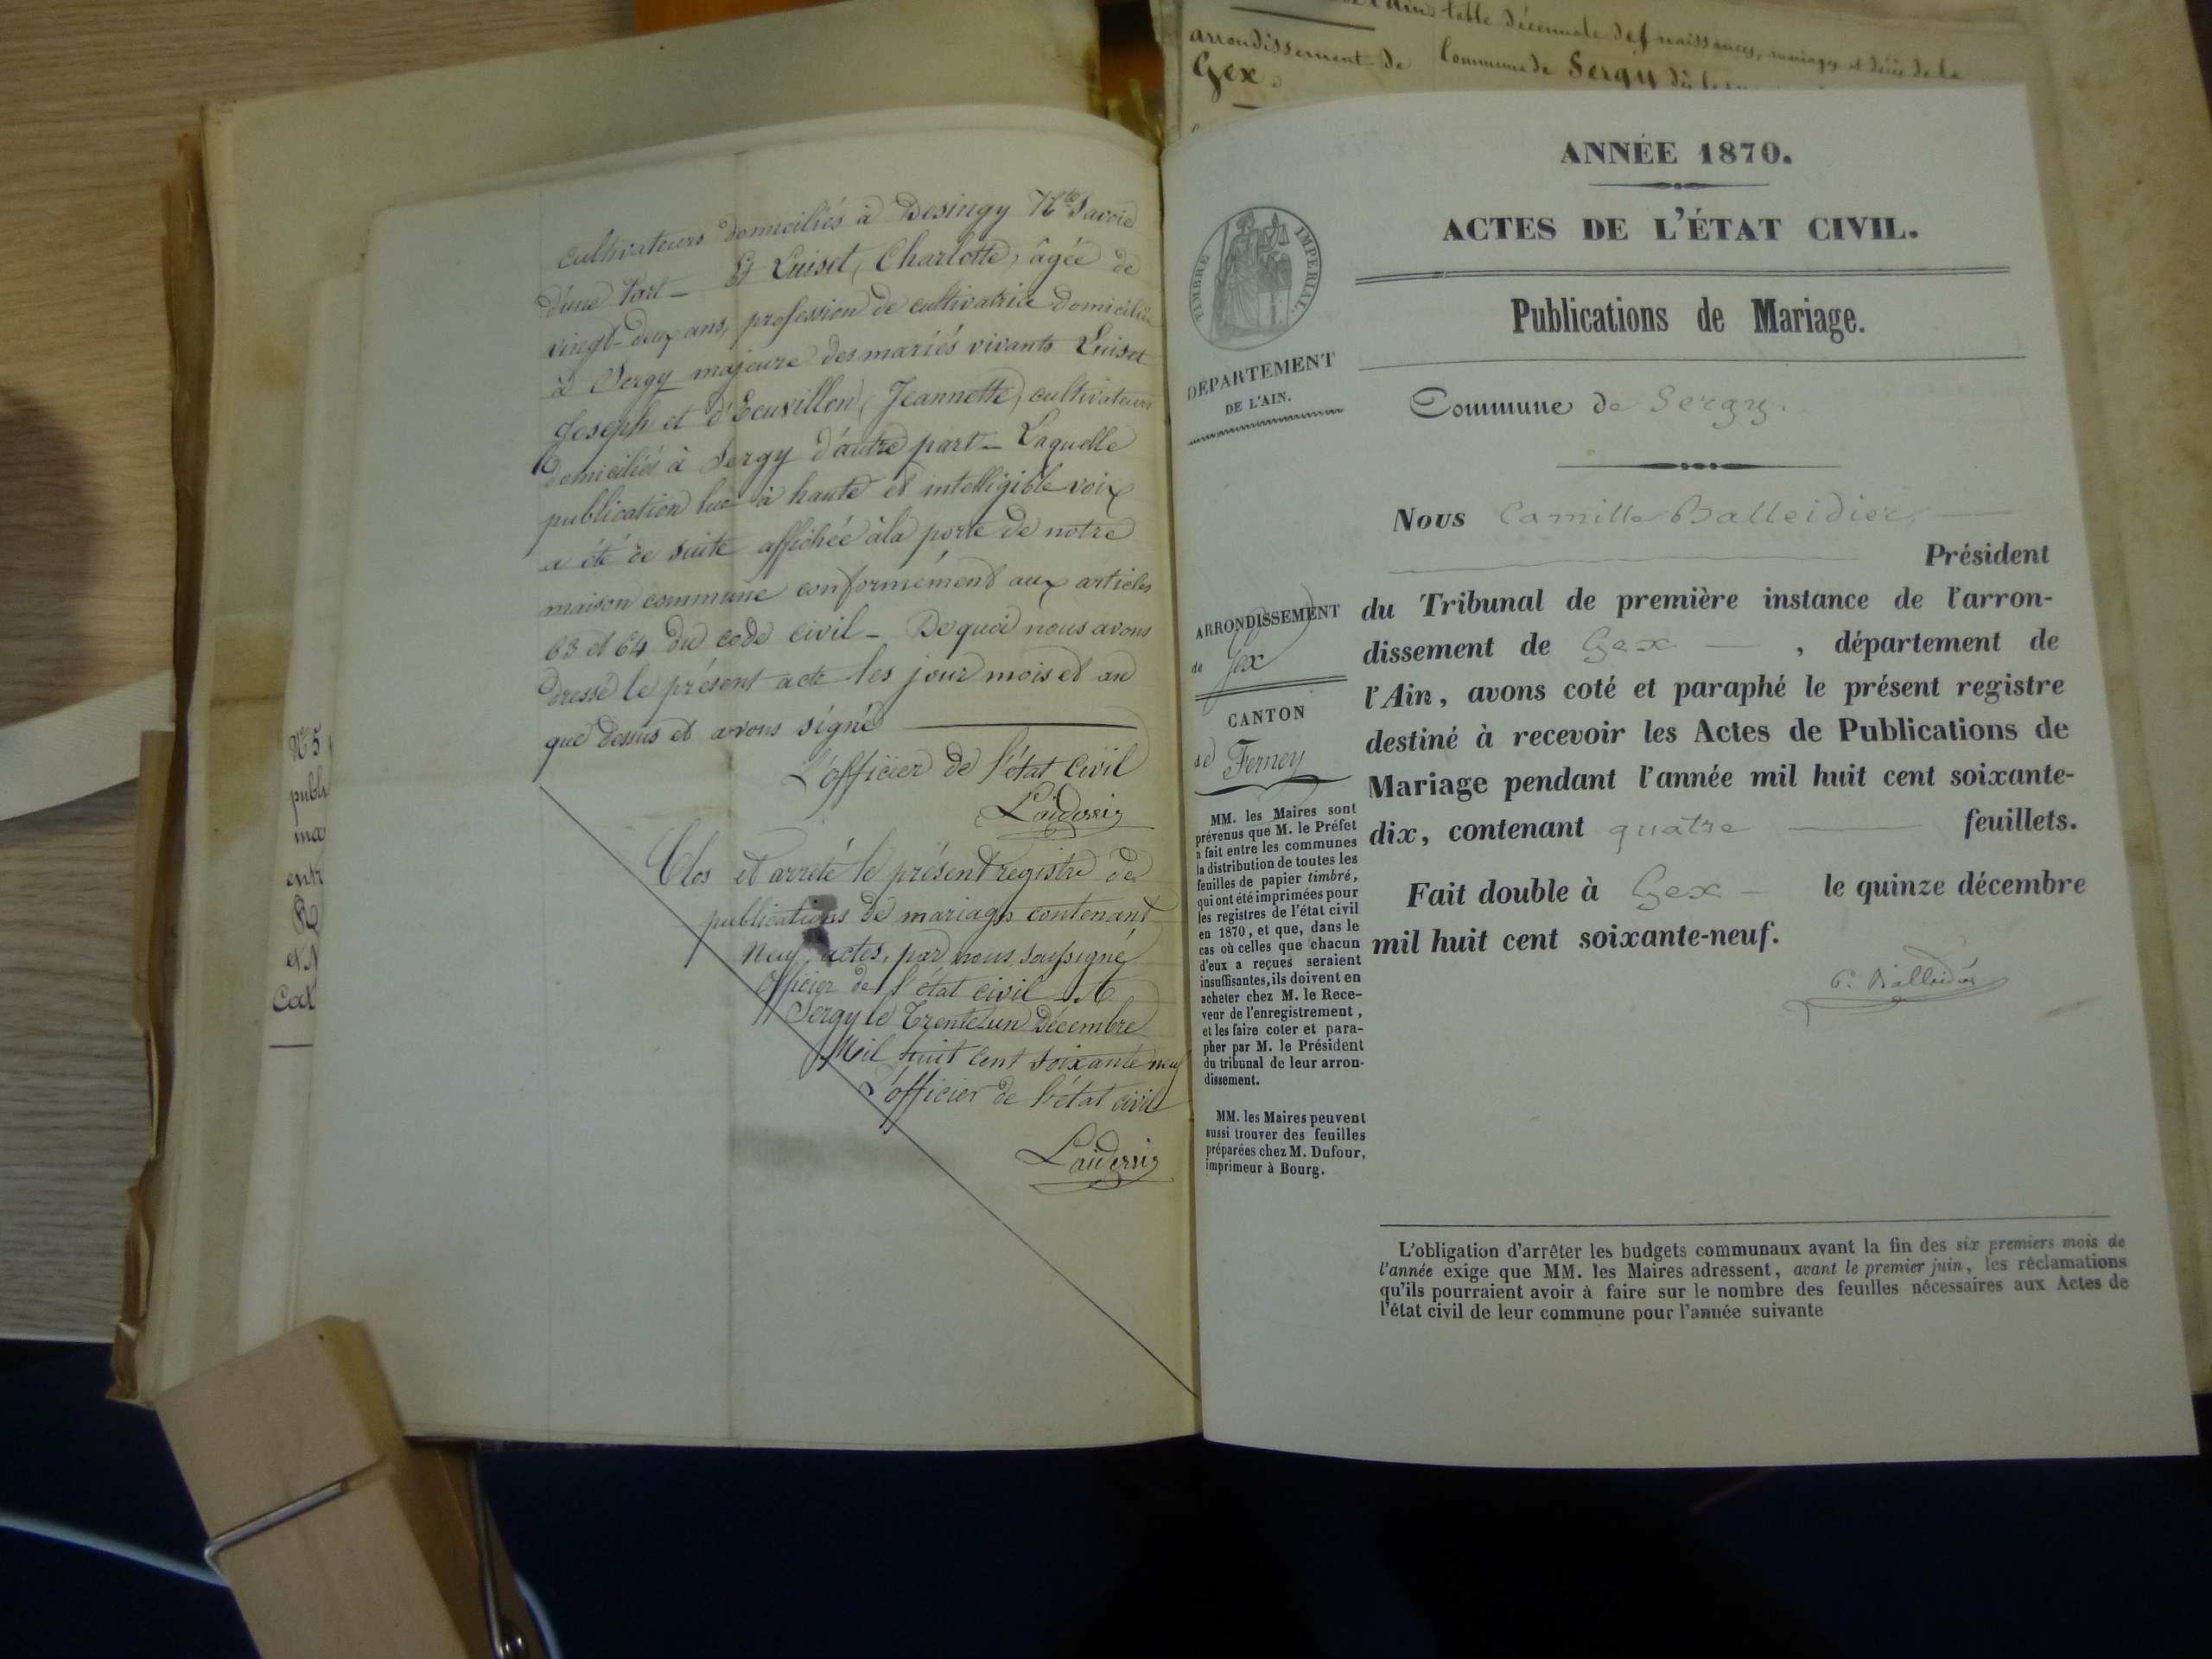 cultivateurs domiciliés à Desingy Hte Savoie
d'une Part _ Et Luiset, Charlotte, âgée de
vingt-deux ans, profession de cultivatrice domiciliée
à Sergy majeure des mariés vivants Luiset
Joseph et d'Ecuvillon, Jeannette, cultivateurs
domiciliés à Sergy d'autre part _ Laquelle
publication lue à haute et intelligible voix
a été de suite affichée à la porte de notre
maison commune conformément aux articles
63 et 64 du code civil _ De quoi nous avons
dressé le présent acte les jour mois et an
que dessus et avons signé
L'officier de l'état civil
Clos et arreté le présent registre de
publications de mariage contenant
neuf actes, par nous soussigné
Officier de l'état civil A
Sergy le Trente un Décembre
Mil huit Cent soixante neuf
L'officier de l'état civil
No 5
publi
ma
entr
et
Cat
table décennale des naissances, mariages et décès de la
arrondissement de
Commune de Sergy
Gex.
TIMBRE IMPERIAL.
DÉPARTEMENT
DE L'AIN.
ARRONDISSEMENT
de Gex
CANTON
de Ferney
MM. les Maires sont
prévenus que M. le Préfet
a fait entre les communes
la distribution de toutes les
feuilles de papier timbré,
qui ont été imprimées pour
les registres de l'état civil
en 1870, et que, dans le
cas où celles que chacun
d'eux a reçues seraient
insuffisantes, ils doivent en
acheter chez M. le Rece-
veur de l'enregistrement,
et les faire coter et para-
pher par M. le Président
du tribunal de leur arron-
dissement.
MM. les Maires peuvent
aussi trouver des feuilles
préparées chez M. Dufour,
imprimeur à Bourg.
ANNÉE 1870.
ACTES DE L'ÉTAT CIVIL.
Publications de Mariage.
Commune de Sergy.
Nous Camille Balleidier,
Président
du Tribunal de première instance de l'arron-
dissement de Gex , département de
l'Ain, avons coté et paraphé le présent registre
destiné à recevoir les Actes de Publications de
Mariage pendant l'année mil huit cent soixante-
dix, contenant quatre feuillets.
Fait double à Gex le quinze décembre
mil huit cent soixante-neuf.
C. Balleidier
L'obligation d'arrêter les budgets communaux avant la fin des six premiers mois de
l'année exige que MM. les Maires adressent, avant le premier juin, les réclamations
qu'ils pourraient avoir à faire sur le nombre des feuilles nécessaires aux Actes de
l'état civil de leur commune pour l'année suivante